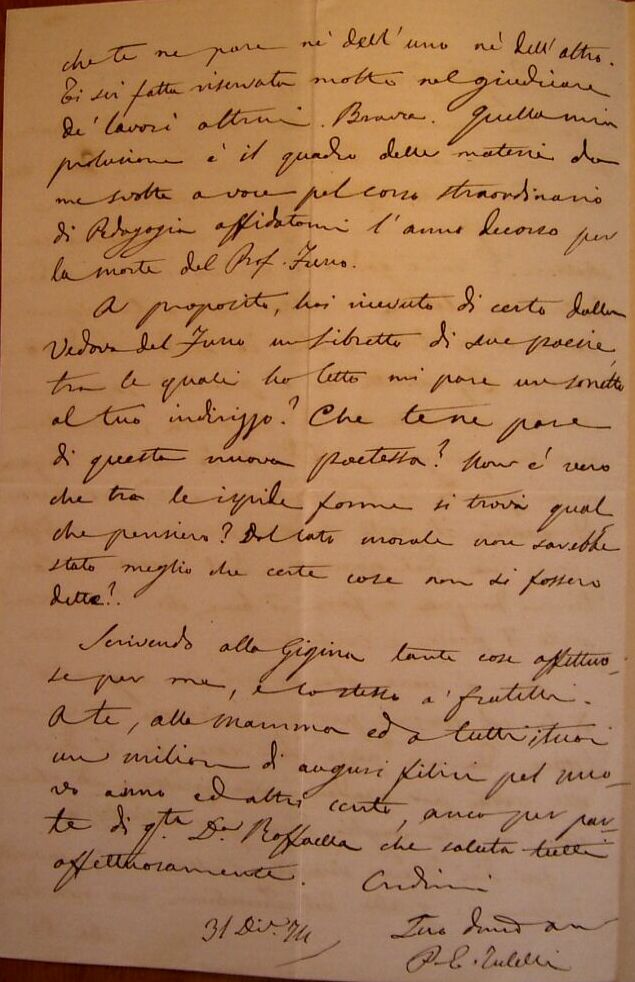 che te ne pare nè dell'uno nè dell'altro.
Ti sei fatta riservata molto nel giudicare
de' lavori altrui. Brava. Quella mia
prolusione è il quadro delle materie da
me svolte a voce pel corso straordinario
di Pedagogia affidatomi l'anno decorso per
la morte del Prof.
A proposito, hai ricevuto di certo dalla
Vedova del un libretto di sue poesie,
tra le quali ho letto mi pare un sonetto
al tuo indirizzo? Che te ne pare
di questa nuova poetessa? Non è vero
che tra le ispide forme si trova qual
che pensiero? Dal lato morale non sarebbe
stato meglio che certe cose non si fossero
dette?.
Scrivendo alla Gigina tante cose affettuo-
se per me, e lo stesso a' fratelli.
A te, alla mamma ed a tutti i tuoi
un milion di auguri felici pel nuo-
vo anno ed altri cento, anco per par-
te di q.ta D.a Raffaella che saluta tutti
affettuosamente. Credimi
31 Dic. 74
Tuo
P. E. Tulelli